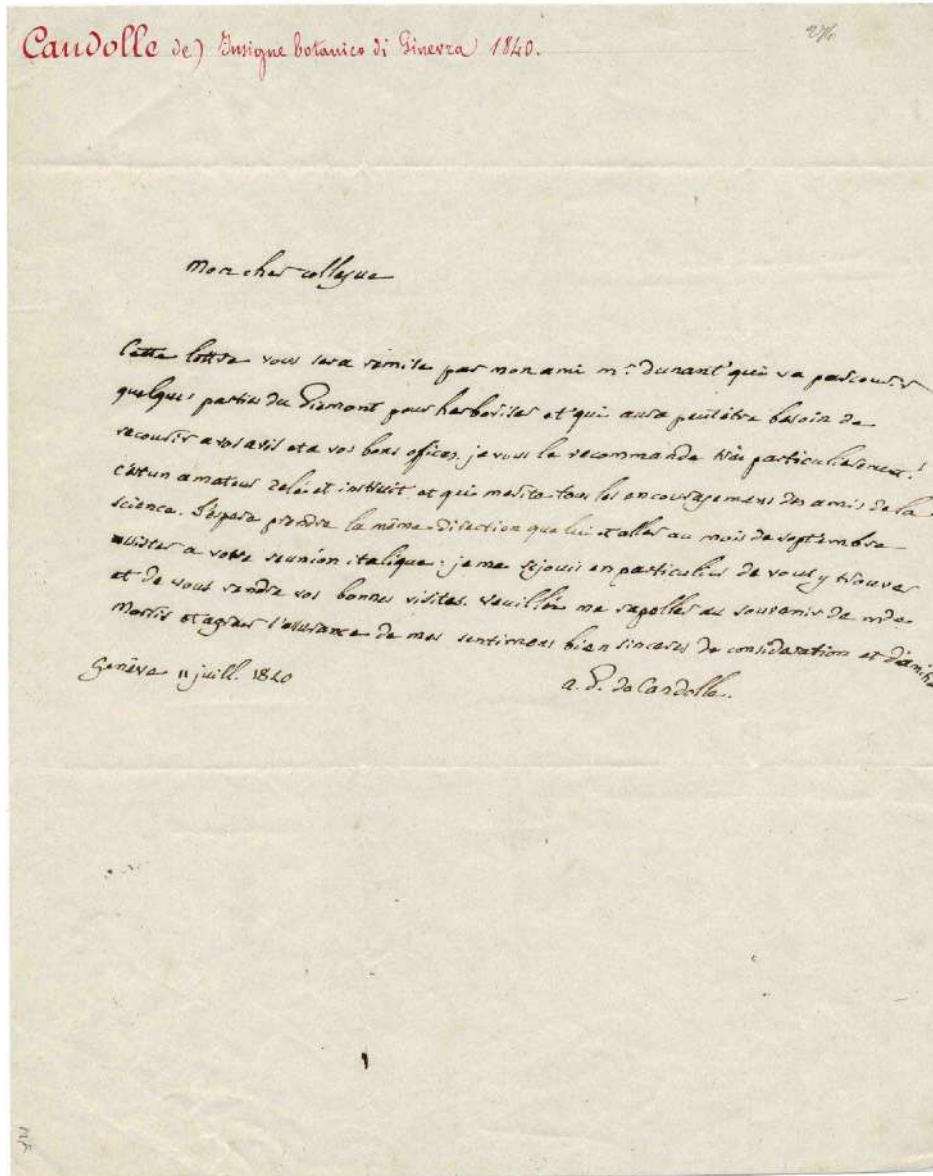 Candolle de) Insigne botanico di Ginevra 1840.
Mon cher collegue
Cette lettre vous sera remise par mon ami mr. Dunant qui va parcourir
quelques parties du Piemont pour herboriser et qui aura peutêtre besoin de
recourir a vos avis et a vos bons offices. je vous le recommande très particulierement.
c'est un amateur zelé et instruit et qui merite tous les encouragemens des amis de la
science. J'espere prendre la même direction que lui et aller au mois de septembre
assister a votre reunion italique: je me rejouis en particulier de vous y trouver
et de vous rendre vos bonnes visites. veuillez me rapeller au souvenir de mde
Moris et agreer l'assurance de mes sentimens bien sinceres de consideration et d'amitié
Genève 11 juill. 1840
a. P. de Candolle.